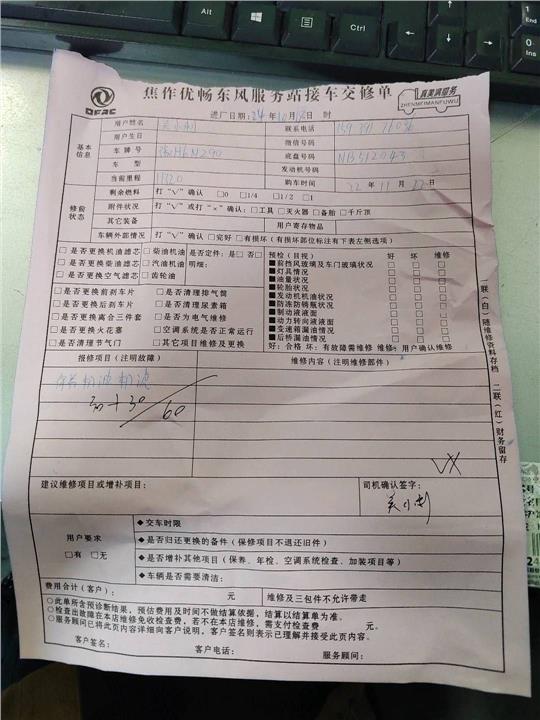 DFAC
焦作优畅东风服务站接车交修单
真美满服务
ZHENMEIMANFUWU
进厂日期: 24 年 10 月 日 时
基本信息
用户姓名
联系电话
用户生日
微信号码
车牌号
底盘号码 NB512043
车型
发动机号码
当前里程 11320
购车时间 22 年 11 月 22 日
修前状态
剩余燃料 打"√"确认 □0 □1/4 □1/2 □1
附件状况 打"√"或打"×"确认:□工具 □灭火器 □备胎 □千斤顶
其它装备 用户寄存物品
车辆外部情况 打"√"确认 □完好 □有损坏(有损坏部位标注有下表左侧选项)
□是否更换机油滤芯 □柴油机油 是否定件: 是□ 否□
□是否更换柴油滤芯 □汽油机油 明细:
□是否更换空气滤芯 □齿轮油
□是否更换前刹车片 □是否清理排气筒
□是否更换后刹车片 □是否清理尿素箱
□是否更换离合三件套 □是否为电气维修
□是否更换火花塞 □空调系统是否正常运行
□是否清理节气门 □其它项目维修及更换
预检(目视) 好 坏 维修
■前挡风玻璃及车门玻璃状况 □ □ □
■灯具情况 □ □ □
■油量状况 □ □ □
■轮胎状况 □ □ □
■发动机机油状况 □ □ □
■防冻防锈瓶状况 □ □ □
■制动液液面 □ □ □
■动力转向液液面 □ □ □
■变速箱漏油情况 □ □ □
■后桥漏油情况 □ □ □
好: 合格 坏: 有故障需维修 维修: 用户确认维修
报修项目(注明故障) 维修内容(注明维修部件)
机油机滤
30+30/60
建议维修项目或增补项目:
司机确认签字:
用户要求
□有 □无
◆交车时限
◆是否归还更换的备件(保修项目不退还旧件)
◆是否增补其他项目(保养、年检、空调系统检查、加装项目等)
◆车辆是否需要清洁:
费用合计(客户): 元 维修及三包件不允许带走
○此单所含预诊断结果,预估费用及时间不做结算依据,结算以结算单为准。
○检查出故障在本店维修免收检查费,若不在本店维修,需支付检查费 元。
○服务顾问已将此页内容详细向客户说明,客户签名则表示已理解并接受此页内容。
客户签名: 客户电话: 服务顾问:
一联(白)随维修资料存档 二联(红)财务留存